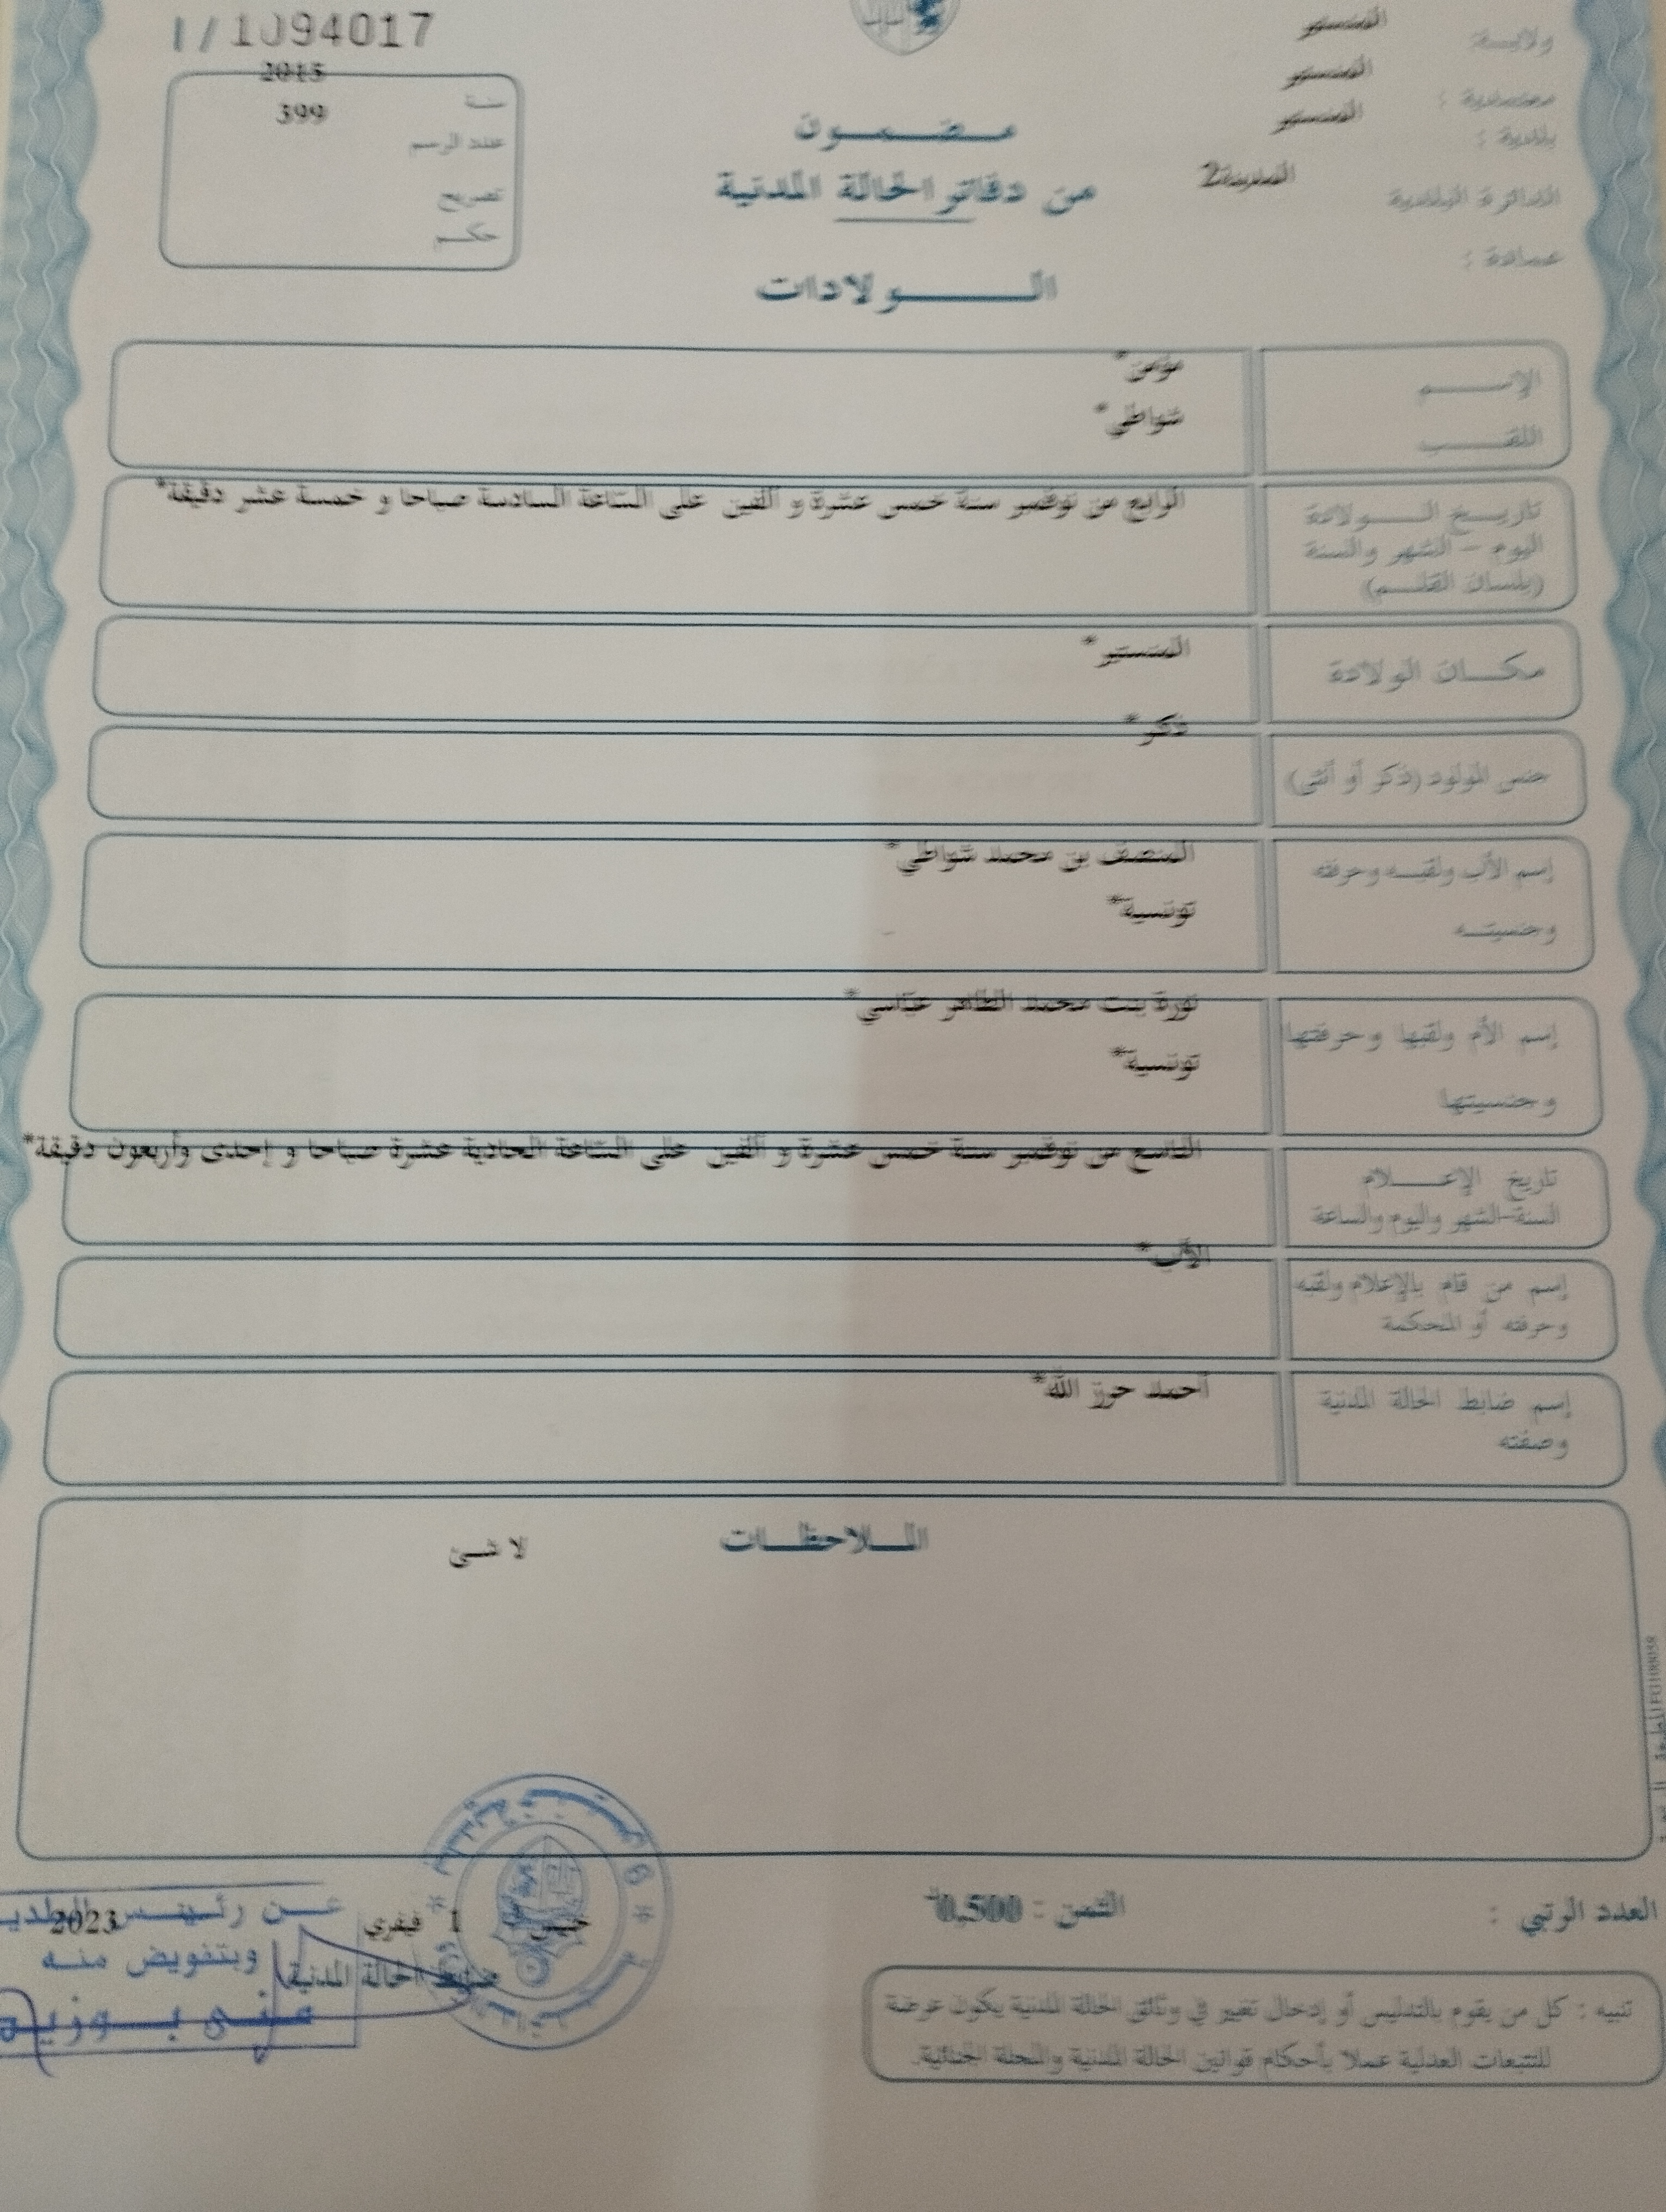 I/1094017
ولايـــة: المنستير
معتمدية : المنستير
بلدية : المنستير
الدائرة البلدية المدينة2
عمادة :
2015
سنة
399
عدد الرسم
تصريح
حكـــم
مـــضـــمـــون
من دفاتر الحالة المدنية
الـــولادات
الإســـم مؤمن*
اللقـــب شواطي*
تاريــخ الـــولادة الرابع من نوفمبر سنة خمس عشرة و ألفين على السّاعة السادسة صباحا و خمسة عشر دقيقة*
اليوم – الشهر والسنة
(بلسان القلـــم)
مكـــان الولادة المنستير*
جنس المولود (ذكر أو أنثى) ذكر*
إسم الأب ولقبـــه وحرفته المنصف بن محمد شواطي*
وجنسيتـــه تونسية*
إسم الأم ولقبها وحرفتها نورة بنت محمد الطاهر عبّاسي*
وجنسيتها تونسية*
تاريخ الإعـــلام التاسع من نوفمبر سنة خمس عشرة و ألفين على السّاعة الحادية عشرة صباحا و إحدى وأربعون دقيقة*
السنة-الشهر واليوم والساعة
إسم من قام بالإعلام ولقبه الأب*
وحرفته أو المحكمة
إسم ضابط الحالة المدنية أحمد حرز الله*
وصفته
المـــلاحظـــات
لا شئ
العدد الرتبي :
الثمن : 0,500
1 فيفري 2023
ضابط الحالة المدنية
عـــن رئيـــس البلديـ
وبتفويض منـــه
منـى بـــوزيـ
تنبيه : كل من يقوم بالتدليس أو إدخال تغيير في وثائق الحالة المدنية يكون عرضة
للتتبعات العدلية عملا بأحكام قوانين الحالة المدنية والمجلة الجنائية.